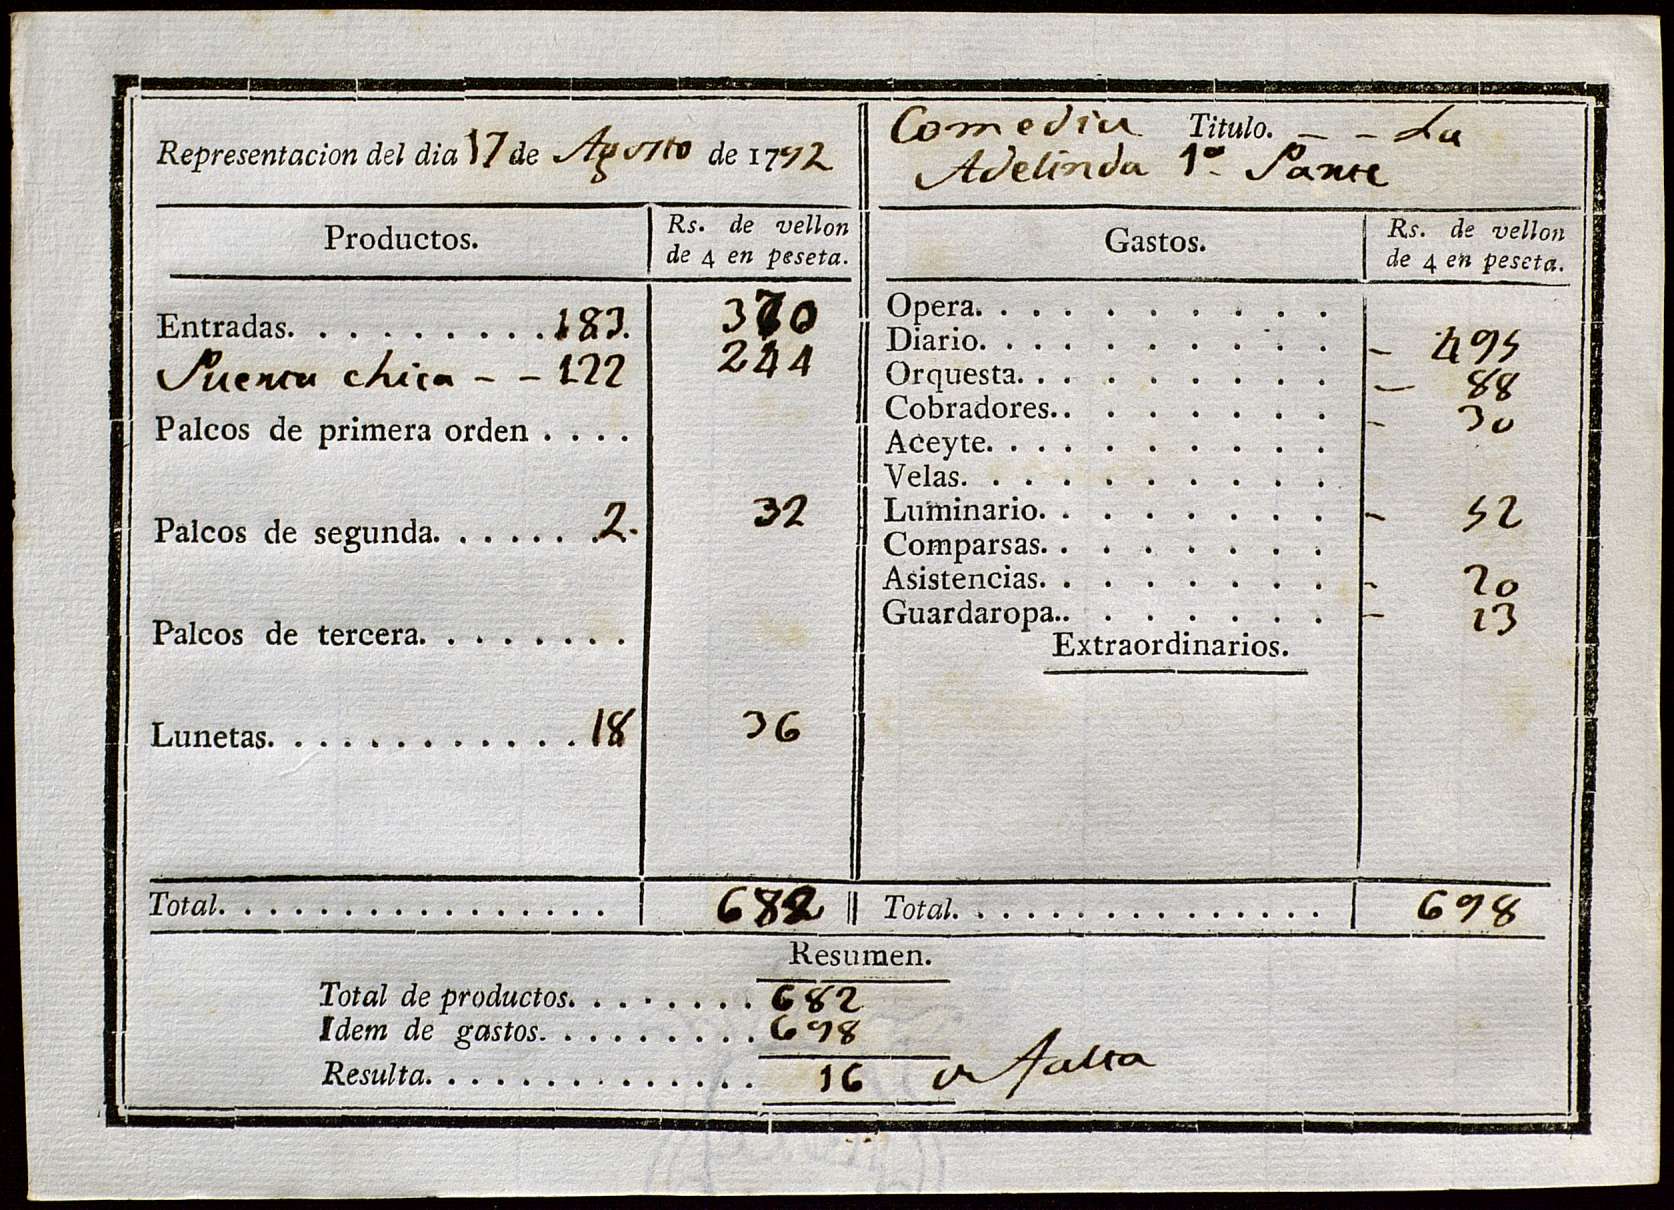 Representacion del dia 17 de Agosto de 1792
Productos. Rs. de vellon
de 4 en peseta.
Entradas. . . . . . . . . . 183. 370
Puerta chica - - 122 244
Palcos de primera orden . . . .
Palcos de segunda. . . . . . . 2. 32
Palcos de tercera. . . . . . . .
Lunetas. . . . . . . . . . . . . 18 36
Total. . . . . . . . . . . . . . . . 682
Comedia Titulo. - - La
Adelinda 1ª Parte
Gastos. Rs. de vellon
de 4 en peseta.
Opera. . . . . . . . . . .
Diario. . . . . . . . . . . - 495
Orquesta. . . . . . . . . - 88
Cobradores.. . . . . . . - 30
Aceyte. . . . . . . . . . .
Velas. . . . . . . . . . .
Luminario. . . . . . . . - 52
Comparsas. . . . . . . .
Asistencias. . . . . . . . - 20
Guardaropa.. . . . . . . - 13
Extraordinarios.
Total. . . . . . . . . . . . . . . . 698
Resumen.
Total de productos. . . . . . . . 682
Idem de gastos. . . . . . . . . 698
Resulta. . . . . . . . . . . . . . 16 de falta